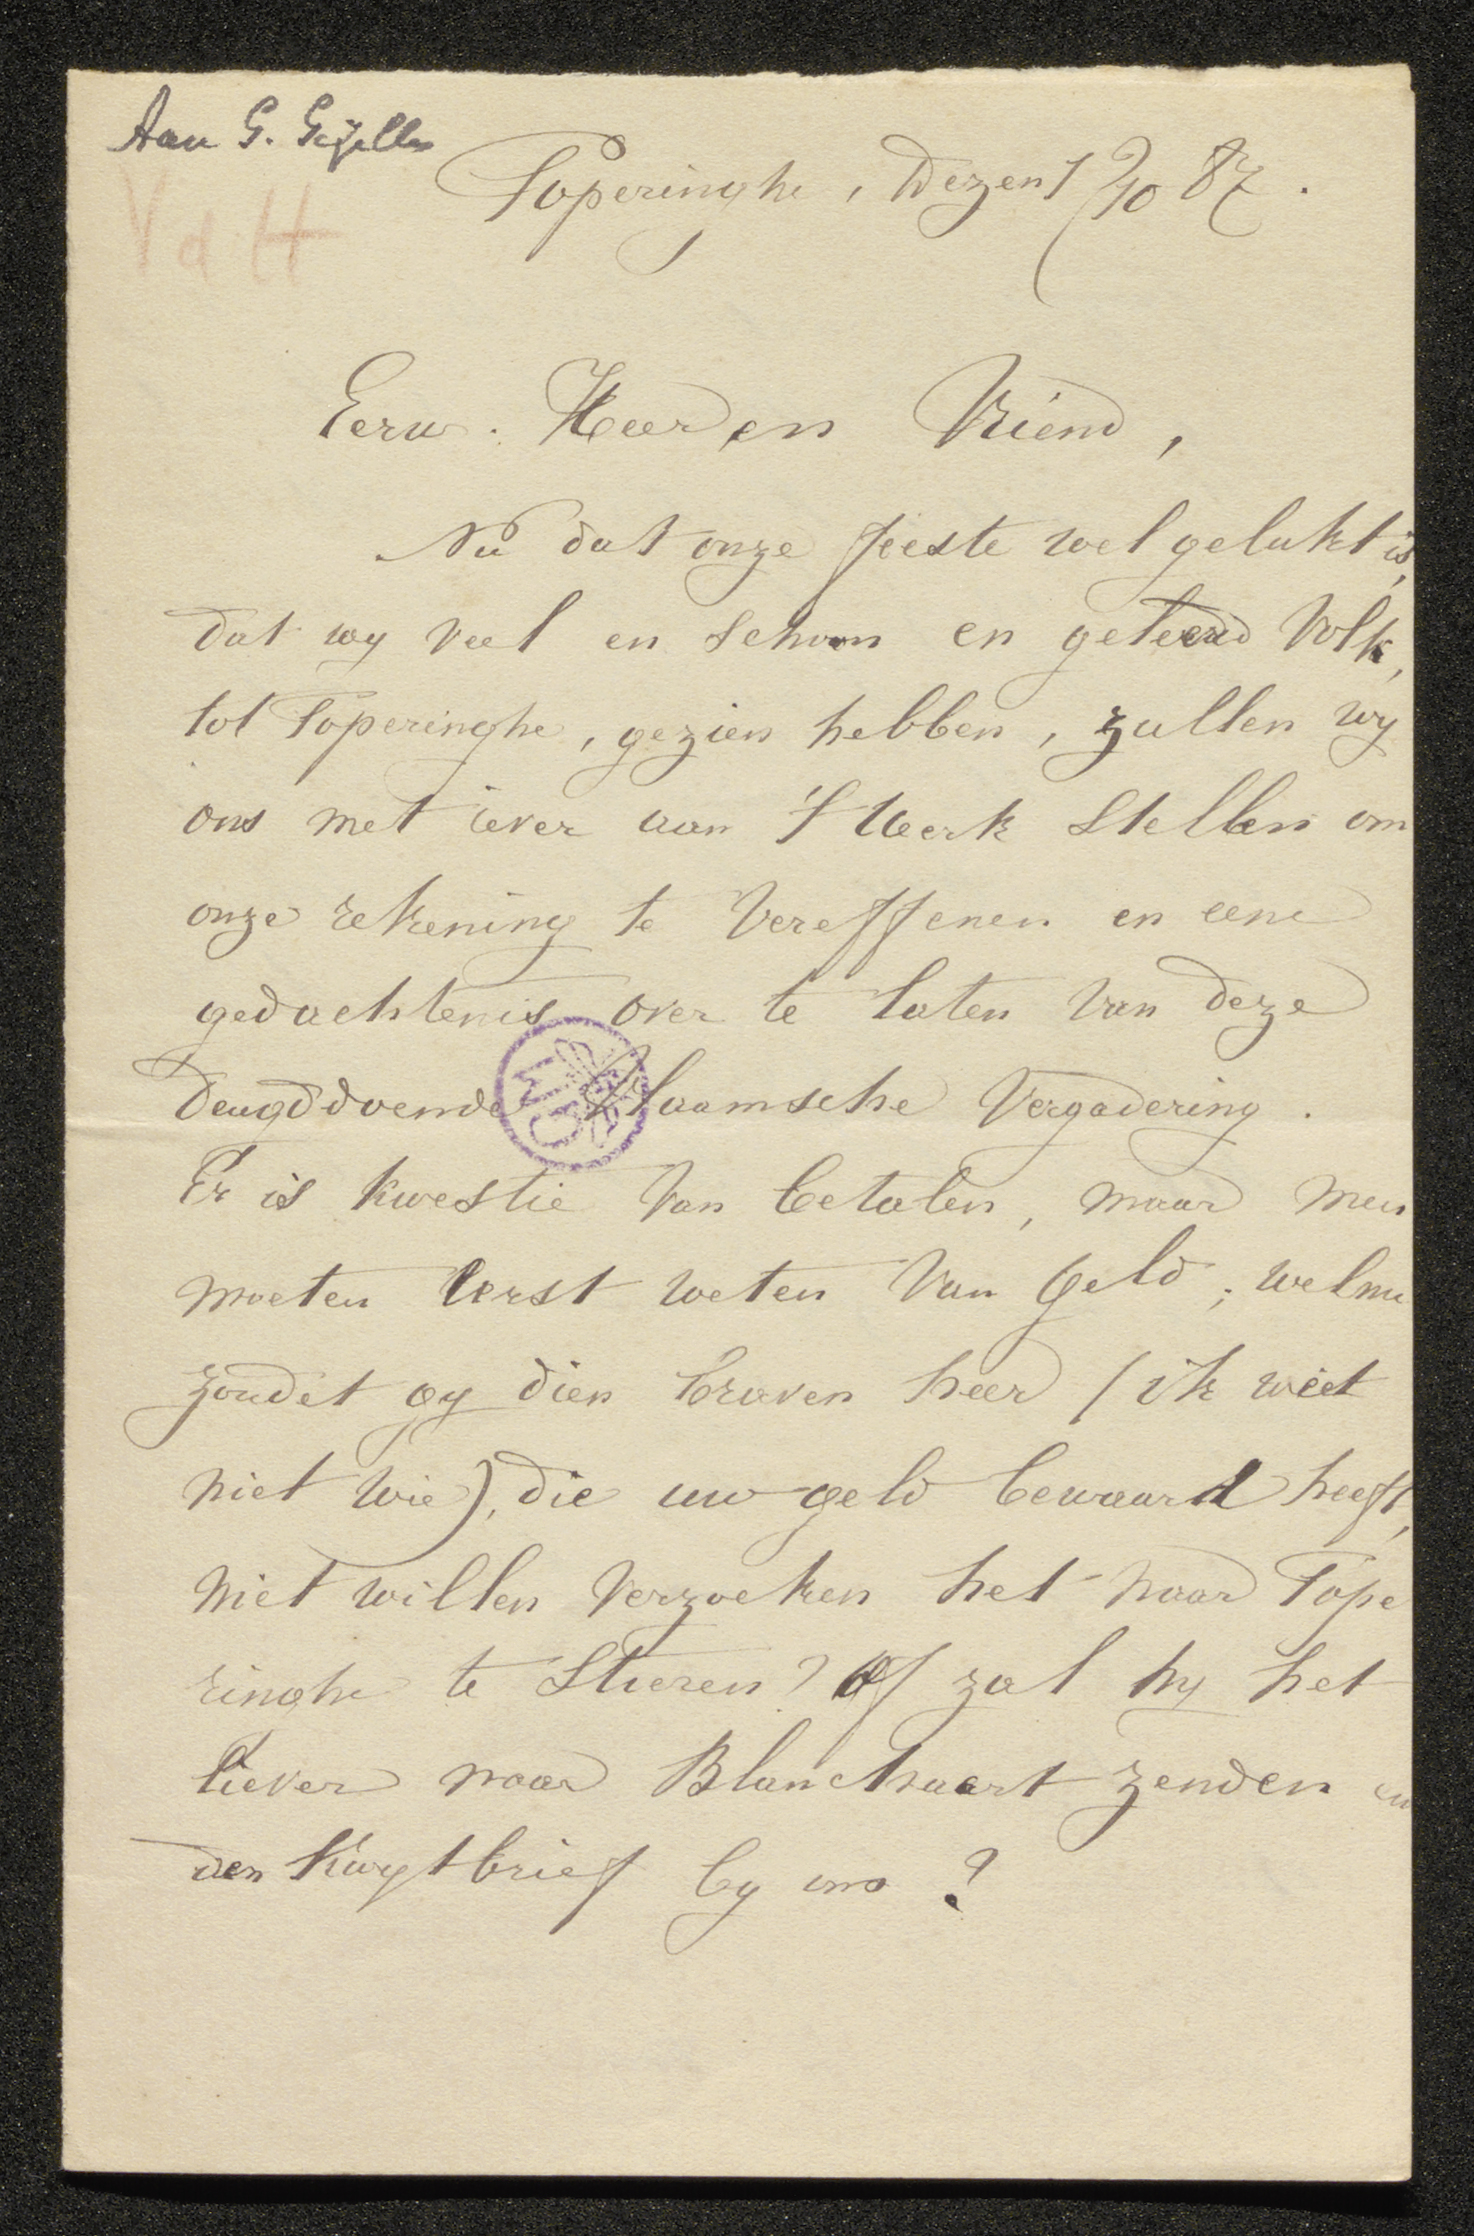 Aan G. Gezelle
VdH
Poperinghe, dezen 1/10 87.
Eerw. Heer en Vriend,
Nu dat onze feeste wel gelukt is,
dat wy veel en schoon en geleerd volk,
tot Poperinghe, gezien hebben, zullen wy
ons met iever aan 't werk stellen om
onze rekening te vereffenen en eene
gedachtenis over te laten van deze
deugddoende Vlaamsche Vergadering.
Er is kwestie van betalen, maar men
moeten eerst weten van geld; welnu
zoudet gy dien braven heer (ik weet
niet wie), die uw geld bewaard heeft,
niet willen verzoeken het naar Pope
ringhe te stieren? Of zal hy het
liever naar Blanckaert zenden en
den kwytbrief by ons?